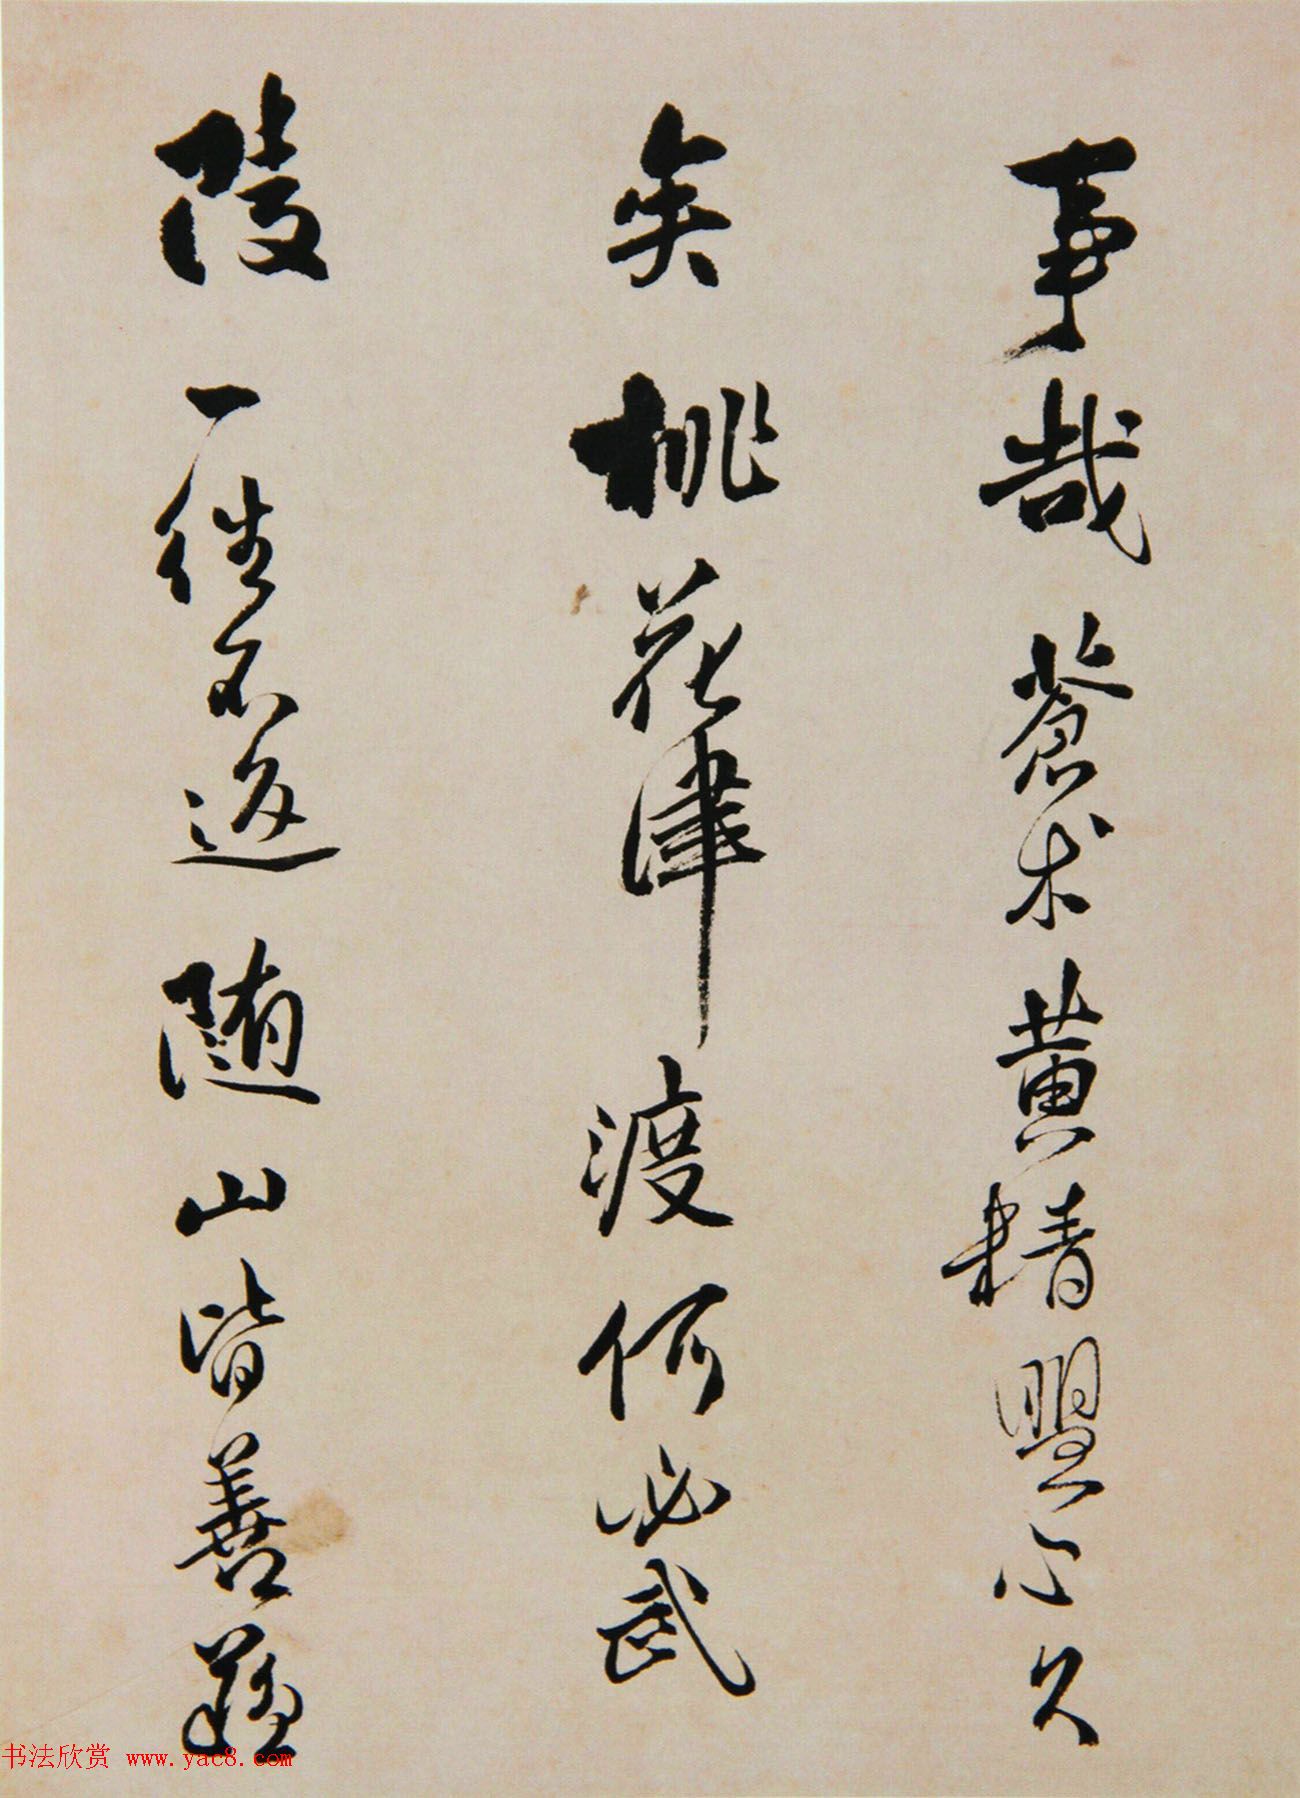 事哉蒼术黄精盟亦久
矣桃花津渡何必武
陵一往不返随山皆善
书法欣赏 www.yac8.com